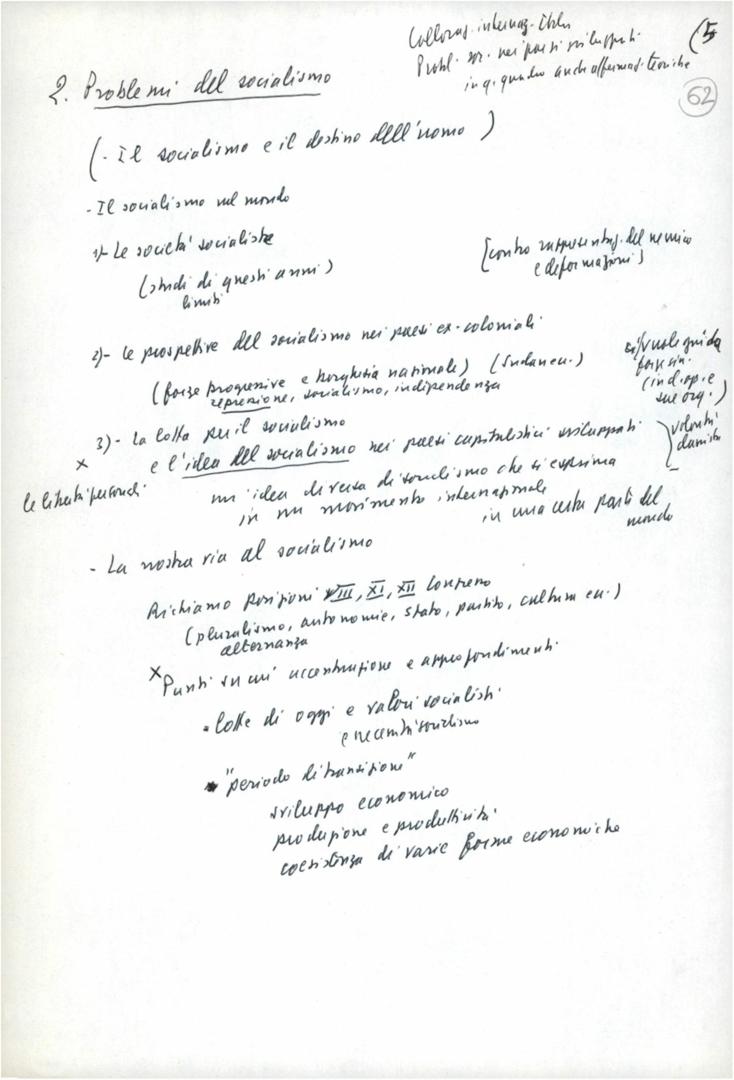 Collocaz. internaz.
Probl. soc. nei paesi sviluppati
in q. quadro anche affermaz. teoriche
(5
62
2. Problemi del socialismo
(- Il socialismo e il destino dell'uomo )
- Il socialismo nel mondo
1)- Le società socialiste
(studi di questi anni)
limiti
[contro rappresentaz. del nemico
e deformazioni]
2)- le prospettive del socialismo nei paesi ex-coloniali
(forze progressive e borghesia nazionale) (Sudan ecc.)
repressione, socialismo, indipendenza
guida
(indip. e
sue org.)
3)- la lotta per il socialismo
x e l'idea del socialismo nei paesi capitalistici sviluppati
volontà
le libertà personali
un'idea diversa di socialismo che si esprima
in un movimento internazionale
in una certa parte del
mondo
- La nostra via al socialismo
Richiamo posizioni VIII, XI, XII Congresso
(pluralismo, autonomie, stato, partito, cultura ecc.)
alternanza
x Punti su cui accentuazione e approfondimenti
- lotte di oggi e valori socialisti
e necessità socialismo
- "periodo di transizione"
sviluppo economico
produzione e produttività
coesistenza di varie forme economiche